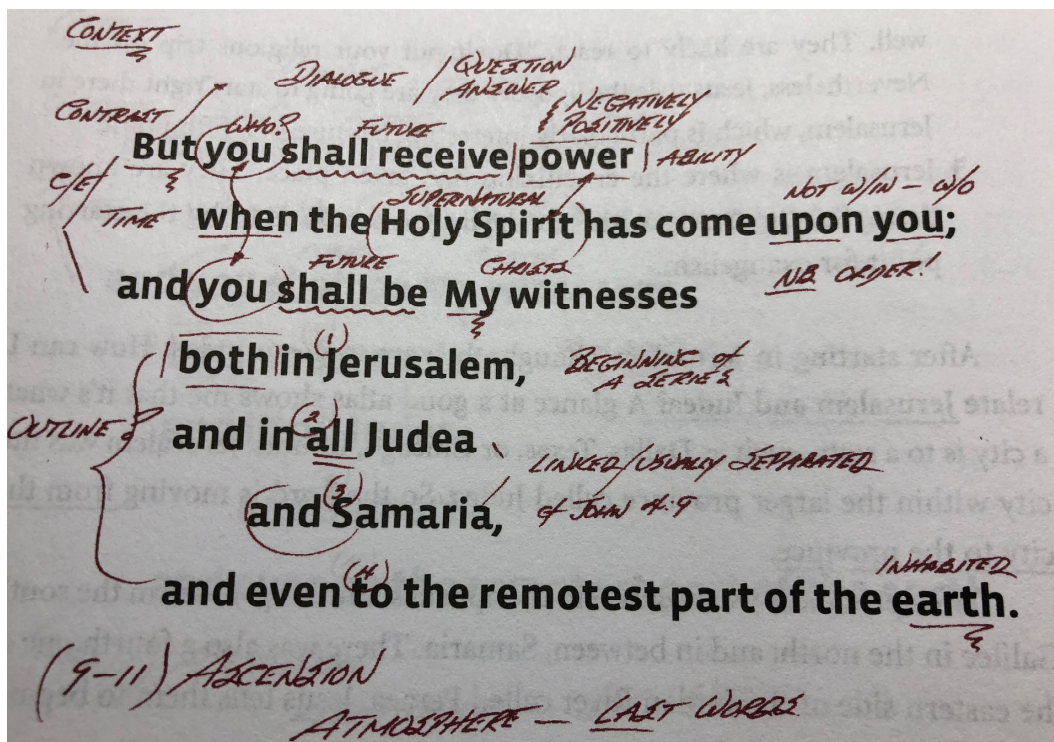 CONTEXT
DIALOGUE / QUESTION
ANSWER
& NEGATIVELY
POSITIVELY
CONTRAST WHO? FUTURE
But you shall receive power | ABILITY
C/E
TIME SUPERNATURAL NOT W/IN – W/O
when the Holy Spirit has come upon you;
FUTURE CHRIST'S NB ORDER!
and you shall be My witnesses
(1)
both in Jerusalem, BEGINNING of
A SERIES
(2)
OUTLINE and in all Judea
(3) LINKED/USUALLY SEPARATED
and Samaria, cf JOHN 4:9
(4) INHABITED
and even to the remotest part of the earth.
(9–11) ASCENSION
ATMOSPHERE – LAST WORDS